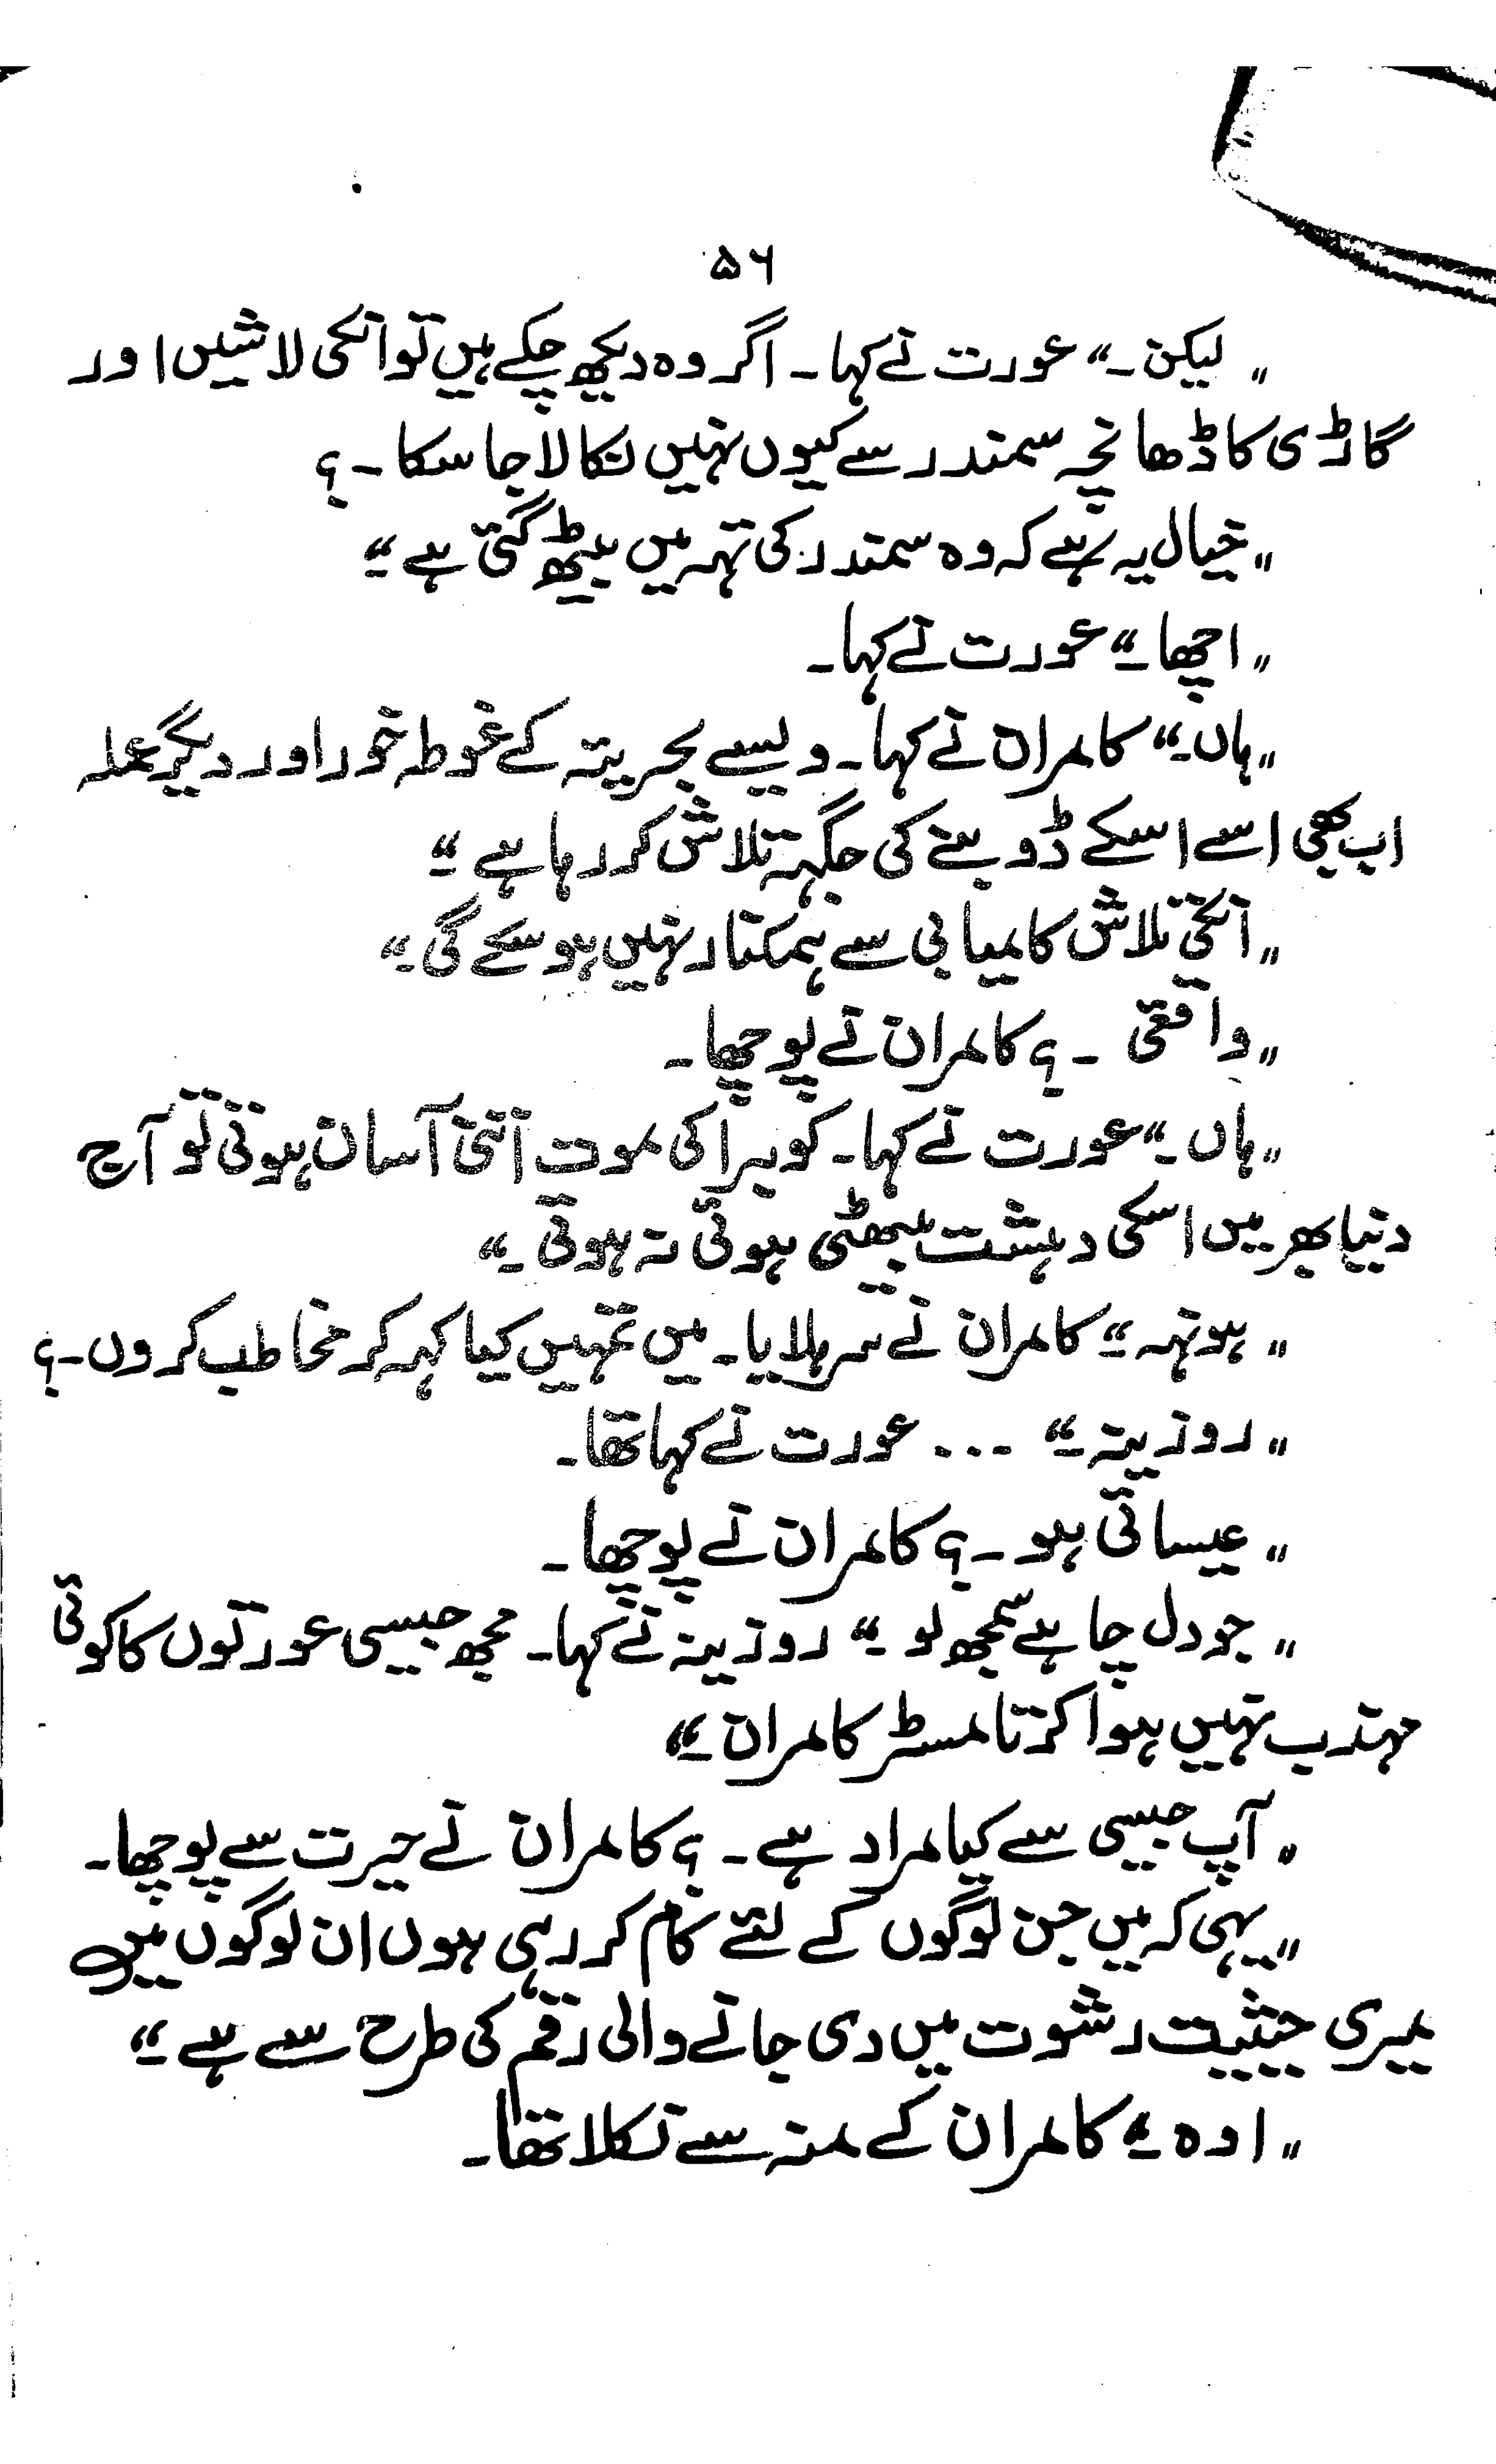 ۵۶
„ لیکن ۔“ عورت نے کہا ۔ اگر وہ دیکھ چکے ہیں تو انکی لاشیں اور
گاڑی کا ڈھانچہ سمندر سے کیوں نہیں نکالا جا سکا ۔ ؟
„ خیال یہ ہے کہ وہ سمندر کی تہہ میں بیٹھ گئی ہے ۔“
„ اچھا ۔“ عورت نے کہا ۔
„ ہاں ۔“ کامران نے کہا ۔ ویسے بحریہ کے غوطہ خور اور دیگر عملہ
اب بھی اسے اسکے ڈوبنے کی جگہ تلاش کر رہا ہے ۔“
„ انکی تلاش کامیابی سے ہمکنار نہیں ہو سکے گی ۔“
„ واقعی ۔ ؟ کامران نے پوچھا ۔
„ ہاں ۔“ عورت نے کہا ۔ کوبرا کی موت اتنی آسان ہوتی تو آج
دنیا بھر میں اسکی دہشت بیٹھی ہوئی نہ ہوتی ۔“
„ ہونہہ ۔“ کامران نے سر ہلایا ۔ میں تمہیں کیا کہہ کر مخاطب کروں ۔ ؟
„ روزینہ ۔“ ... عورت نے کہا تھا ۔
„ عیسائی ہو ۔ ؟ کامران نے پوچھا ۔
„ جو دل چاہے سمجھ لو ۔“ روزینہ نے کہا ۔ مجھ جیسی عورتوں کا کوئی
مہذب نہیں ہوا کرتا مسٹر کامران ۔“
„ آپ جیسی سے کیا مراد ہے ۔ ؟ کامران نے حیرت سے پوچھا ۔
„ یہی کہ میں جن لوگوں کے لئے کام کر رہی ہوں ان لوگوں میں
میری حیثیت رشوت میں دی جانے والی رقم کی طرح سے ہے ۔“
„ اوہ ۔“ کامران کے منہ سے نکلا تھا ۔